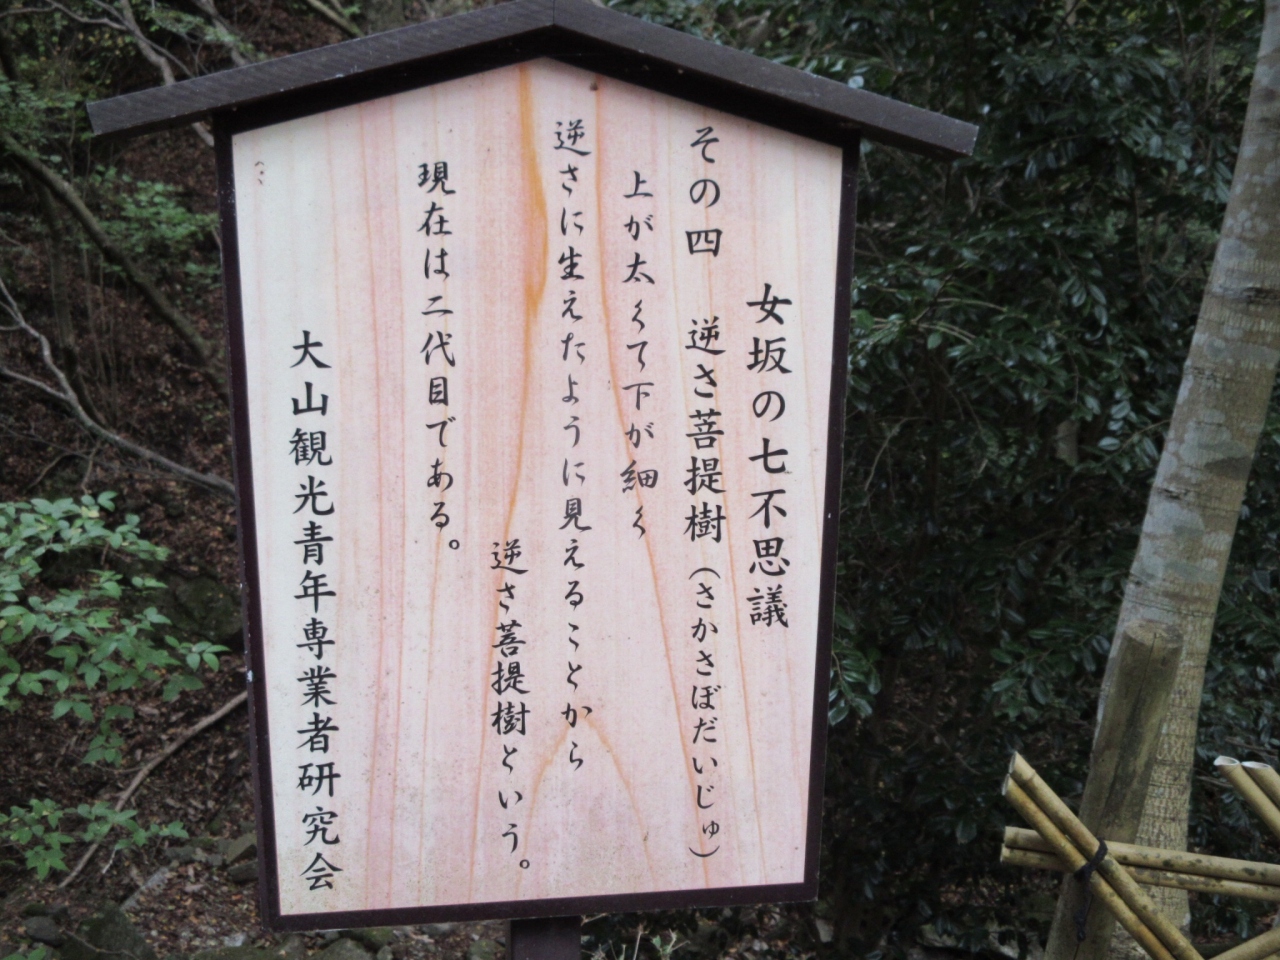 女坂の七不思議
その四 逆さ菩提樹（さかさぼだいじゅ）
上が太くて下が細く
逆さに生えたように見えることから
逆さ菩提樹という。
現在は二代目である。
大山観光青年専業者研究会